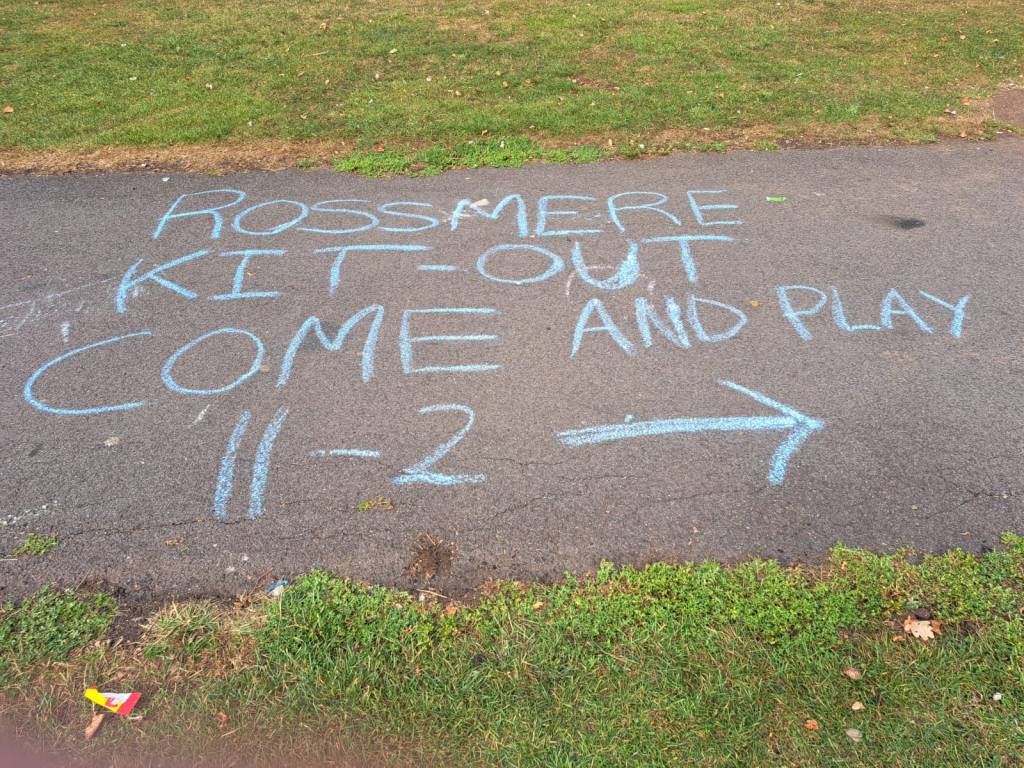 ROSSMERE
KIT-OUT
COME AND PLAY
11-2 →